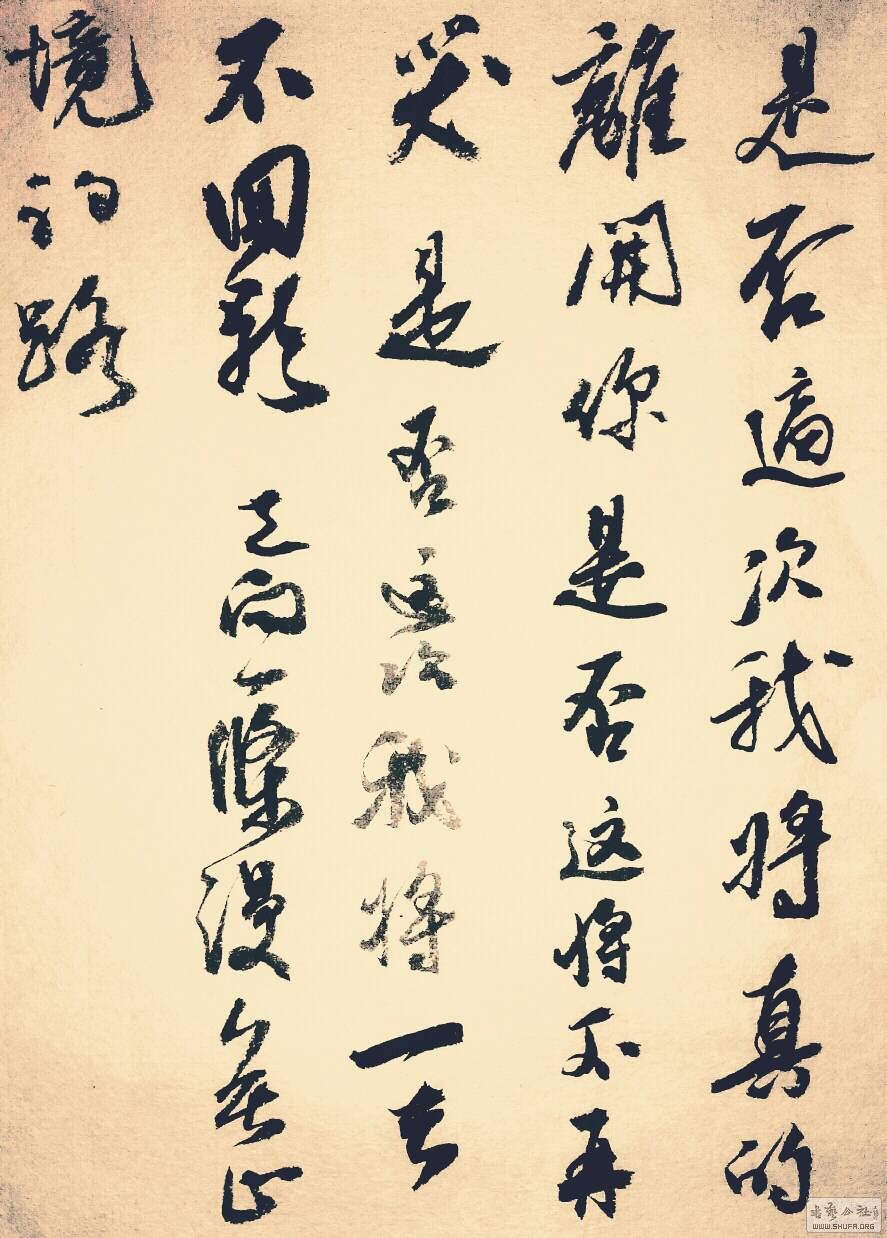 是否適次我将真的
離開你是否这将不再
哭 是否這次我将一去
不回頭 走向一條漫無止
境的路
书艺公社
WWW.SHUFA.ORG